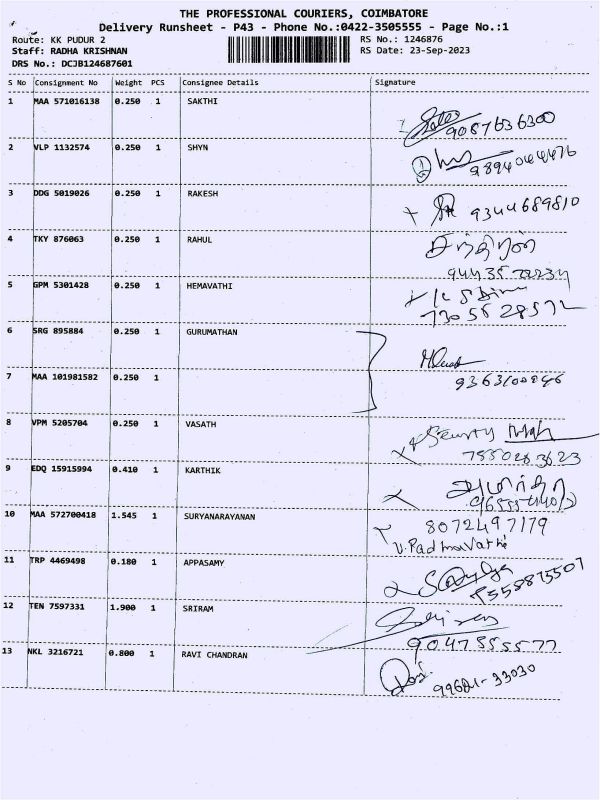 THE PROFESSIONAL COURIERS, COIMBATORE
Delivery Runsheet - P43 - Phone No.:0422-3505555 - Page No.:1
Route: KK PUDUR 2 RS No.: 1246876
Staff: RADHA KRISHNAN RS Date: 23-Sep-2023
DRS No.: DCJB124687601
S No Consignment No Weight PCS Consignee Details Signature
1 MAA 571016138 0.250 1 SAKTHI
9087636300
2 VLP 1132574 0.250 1 SHYN
9894044476
3 DDG 5019026 0.250 1 RAKESH
9344689810
4 TKY 876063 0.250 1 RAHUL
5 GPM 5301428 0.250 1 HEMAVATHI
7305528572
6 SRG 895884 0.250 1 GURUMATHAN
7 MAA 101981582 0.250 1
8 VPM 5205704 0.250 1 VASATH
Security
7550263623
9 EDQ 15915994 0.410 1 KARTHIK
10 MAA 572700418 1.545 1 SURYANARAYANAN
8072497179
V. Padmavathi
11 TRP 4469498 0.180 1 APPASAMY
12 TEN 7597331 1.900 1 SRIRAM
9047555577
13 NKL 3216721 0.800 1 RAVI CHANDRAN
99621-33030